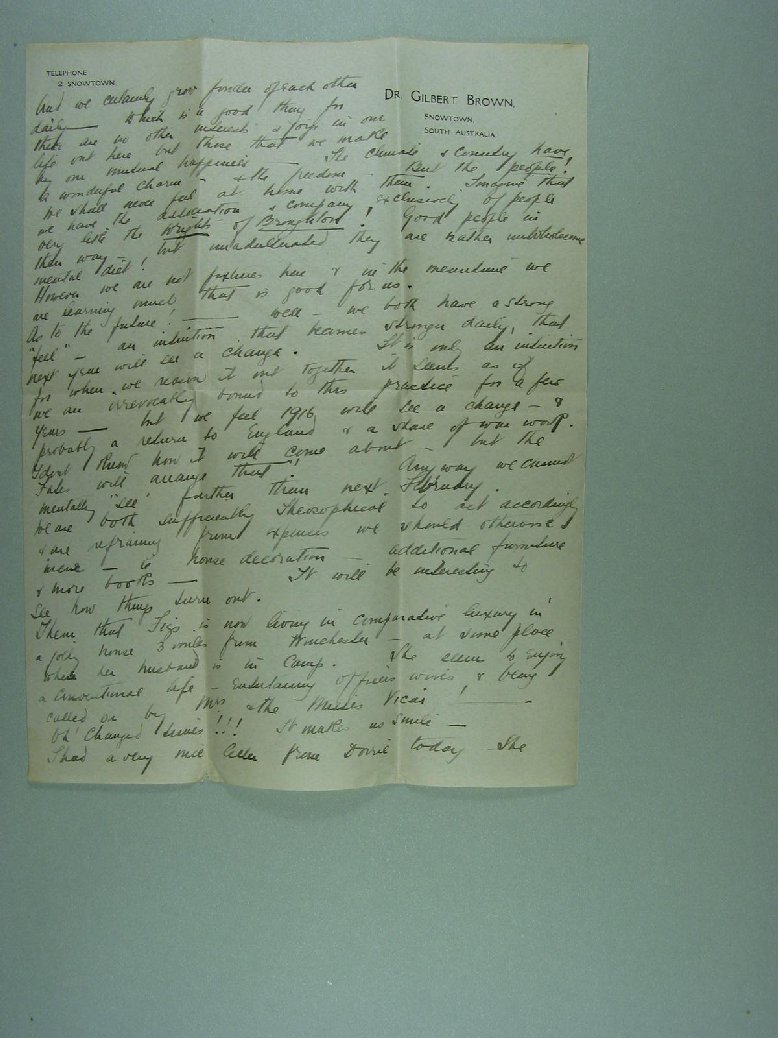 TELEPHONE
2 SNOWTOWN.
DR. GILBERT BROWN,
SNOWTOWN,
SOUTH AUSTRALIA
And we certainly grow fonder of each other
daily — which is a good thing for
there are no other interests & joys in our
life out here but those that we make
by our mutual happiness — The climate & country have
a wonderful charm — & the freedom — But the people!
We shall never feel at home with them. Imagine that
we have the association & company exclusively of people
very like the Wrights of Broughton! Good people in
their way! but unadulterated they are rather unwholesome
mental diet!
However we are not fixtures here & in the meantime we
are learning much that is good for us.
As to the future! — well — we both have a strong
"feel" — an intuition that becomes stronger daily, that
next year will see a change. It is only an intuition
for when we reason it out together it seems as if
we are irrevocably bound to this practice for a few
years — but we feel 1916 will see a change — &
probably a return to England & a share of war work.
I don't know how it will come about — but the
Fates will arrange that! Anyway we cannot
mentally "see" further than next February.
We are both sufficiently Theosophical to act accordingly
& are refraining from expenses we should otherwise
incur — ie house decoration — additional furniture
& more books — It will be interesting to
see how things turn out.
Them that Figs is now living in comparative luxury in
a jolly house 3 miles from Winchester — at some place
where her husband is in Camp. She seems to enjoy
a conventional life — entertaining officers wives & being
called on by Mrs & the Misses Vicar! —
Oh! Changed times!!! It makes us smile —
I had a very nice letter from Dorrie today She